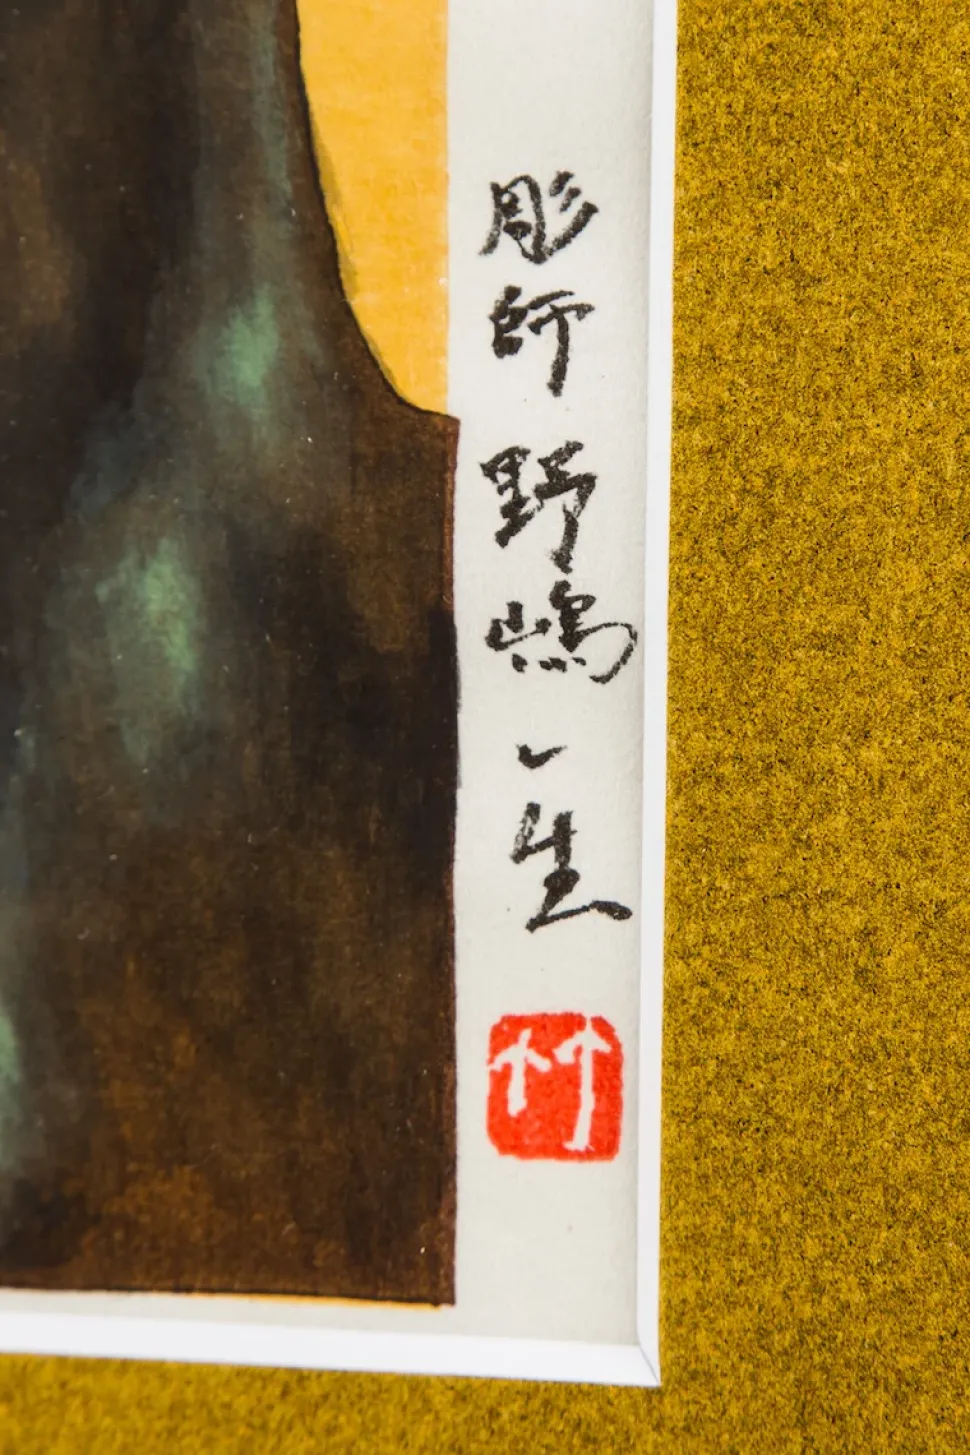 彫師 野嶋一生
竹